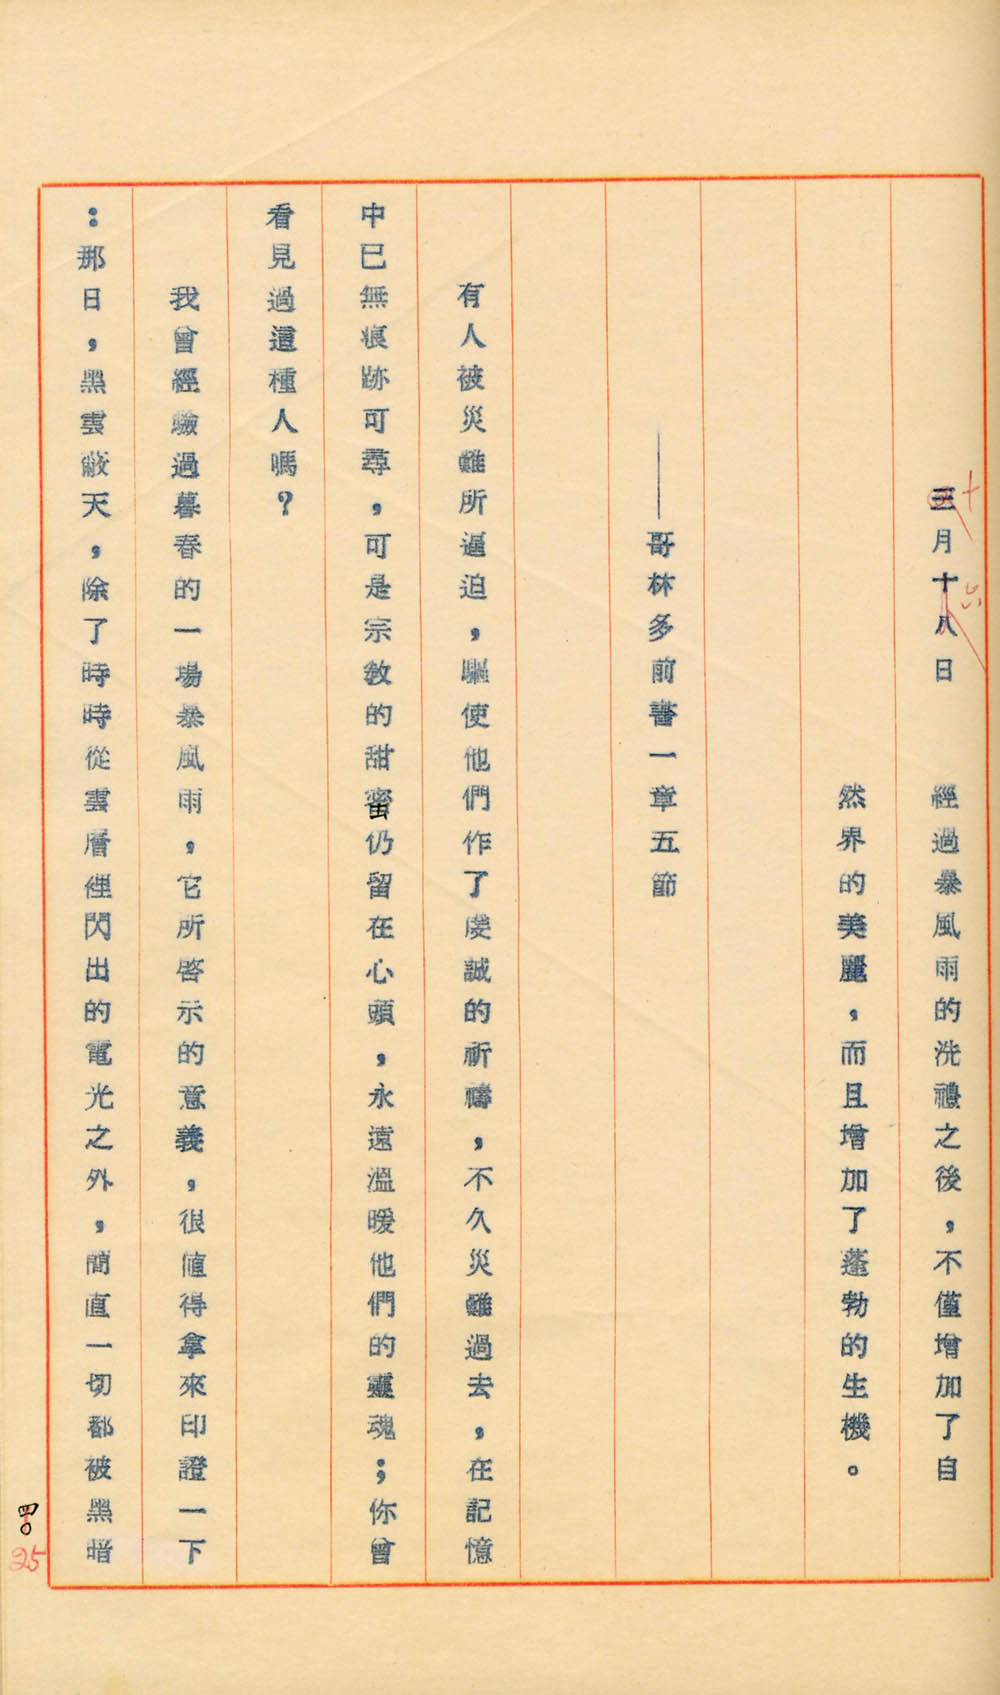 三月十八日　經過暴風雨的洗禮之後，不僅增加了自
十
六
然界的美麗，而且增加了蓬勃的生機。
——哥林多前書一章五節
有人被災難所逼迫，驅使他們作了虔誠的祈禱，不久災難過去，在記憶
中已無痕跡可尋，可是宗教的甜蜜仍留在心頭，永遠溫暖他們的靈魂；你曾
看見過這種人嗎？
我曾經驗過暮春的一場暴風雨，它所啓示的意義，很値得拿來印證一下
：那日，黑雲蔽天，除了時時從雲層裡閃出的電光之外，簡直一切都被黑暗
25